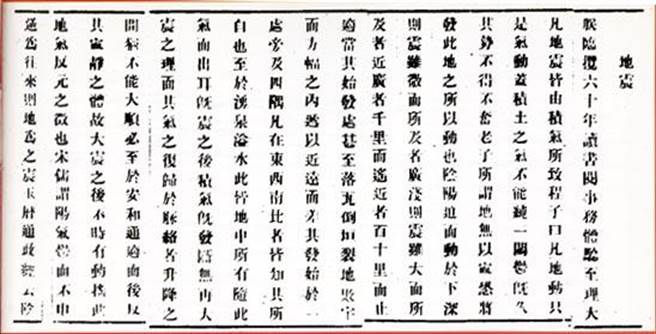 地震
朕臨攬六十年讀書閱事務體驗至理大
凡地震皆由積氣所致程子曰凡地動只
是氣動蓋積土之氣不能純一悶鬱既久
其勢不得不奮老子所謂地無以寧恐將
發此地之所以動也陰陽迫而動於下深
則震雖微而所及者廣淺則震雖大而所
及者近廣者千里而遙近者百十里而止
適當其始發處甚至落瓦倒垣裂地敗宇
而方幅之內遞以近遠而差其發始於一
處旁及四隅凡在東西南北者皆知其所
自也至於湧泉溢水此皆地中所有隨此
氣而出耳既震之後積氣既發斷無再大
震之理而其氣之復歸於脈絡者升降之
間猶不能大順必至於安和通適而後反
其寧靜之體故大震之後不時有動搖此
地氣反元之徵也宋儒謂陽氣鬱而不申
逆為往來則地為之震玉曆通政經云陰